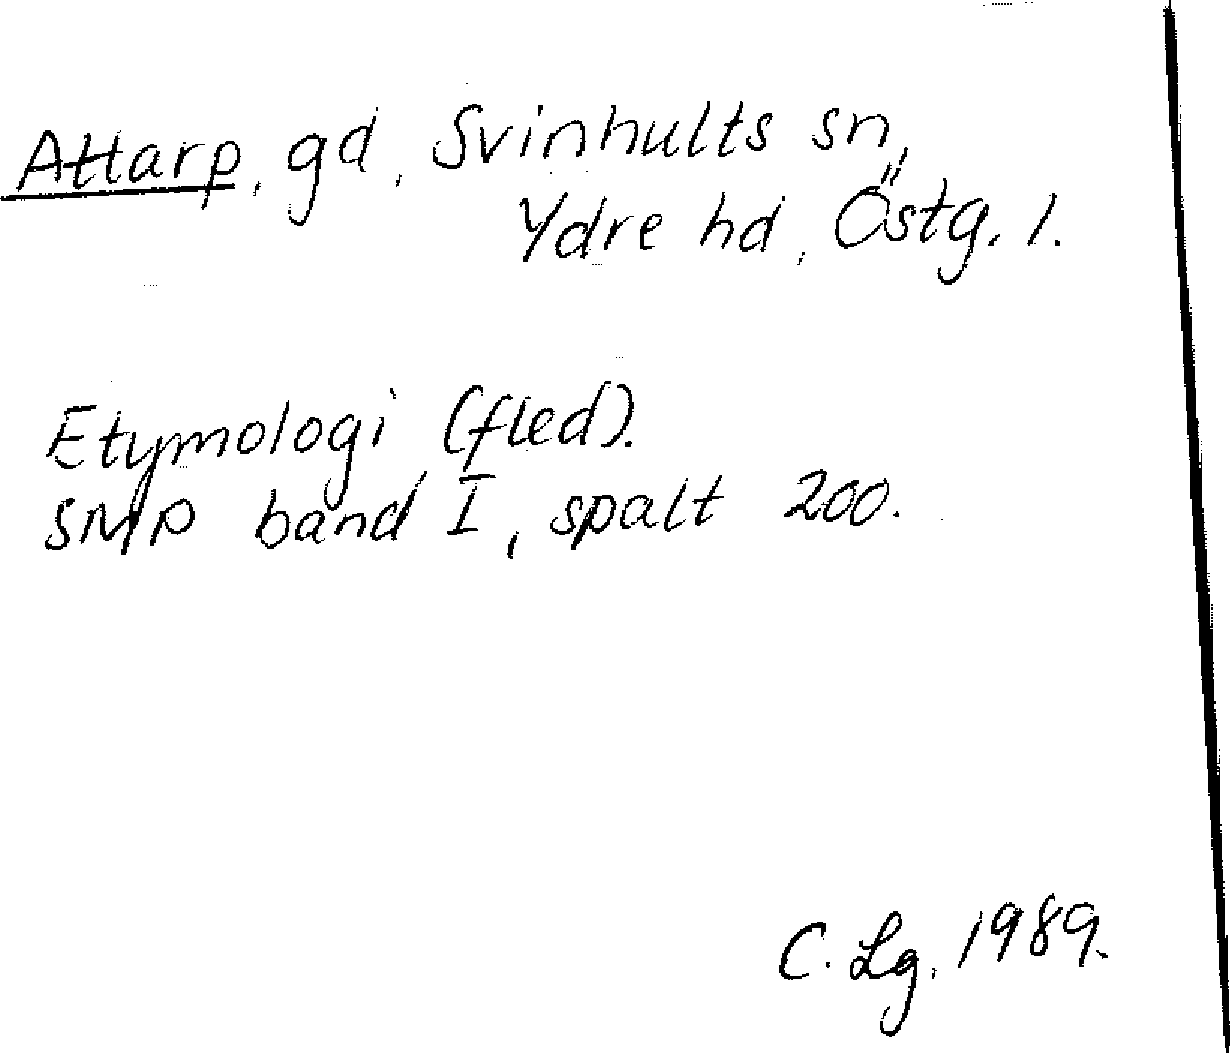 Attarp, gd, Svinhults sn,
Ydre hd, Östg. l.
Etymologi (fled).
SMP band I, spalt 200.
C. Lg. 1989.